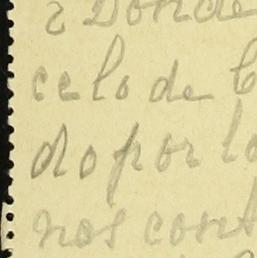 ¿Donde
celo de C
do por lo
nos cont